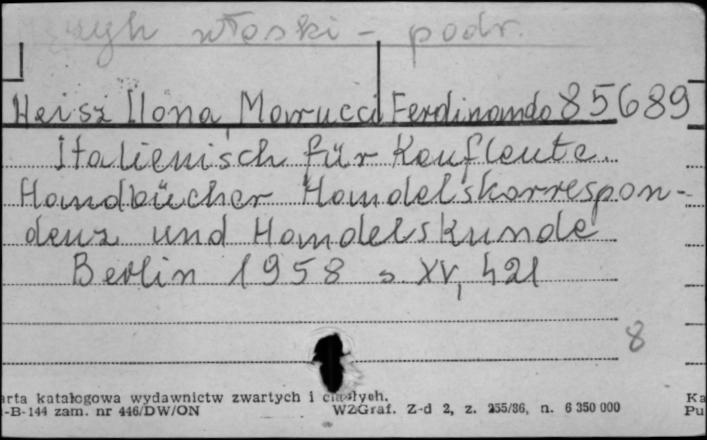 język włoski - podr.
Heisz Ilona, Marucci Ferdinando 85689
Italienisch für Kaufleute.
Handbücher Handelskorrespon-
denz und Handelskunde
Berlin 1958 s. XV, 421
8
arta katalogowa wydawnictw zwartych i ciągłych.
-B-144 zam. nr 446/DW/ON WZGraf. Z-d 2, z. 255/86, n. 6 350 000
Ka
Pu